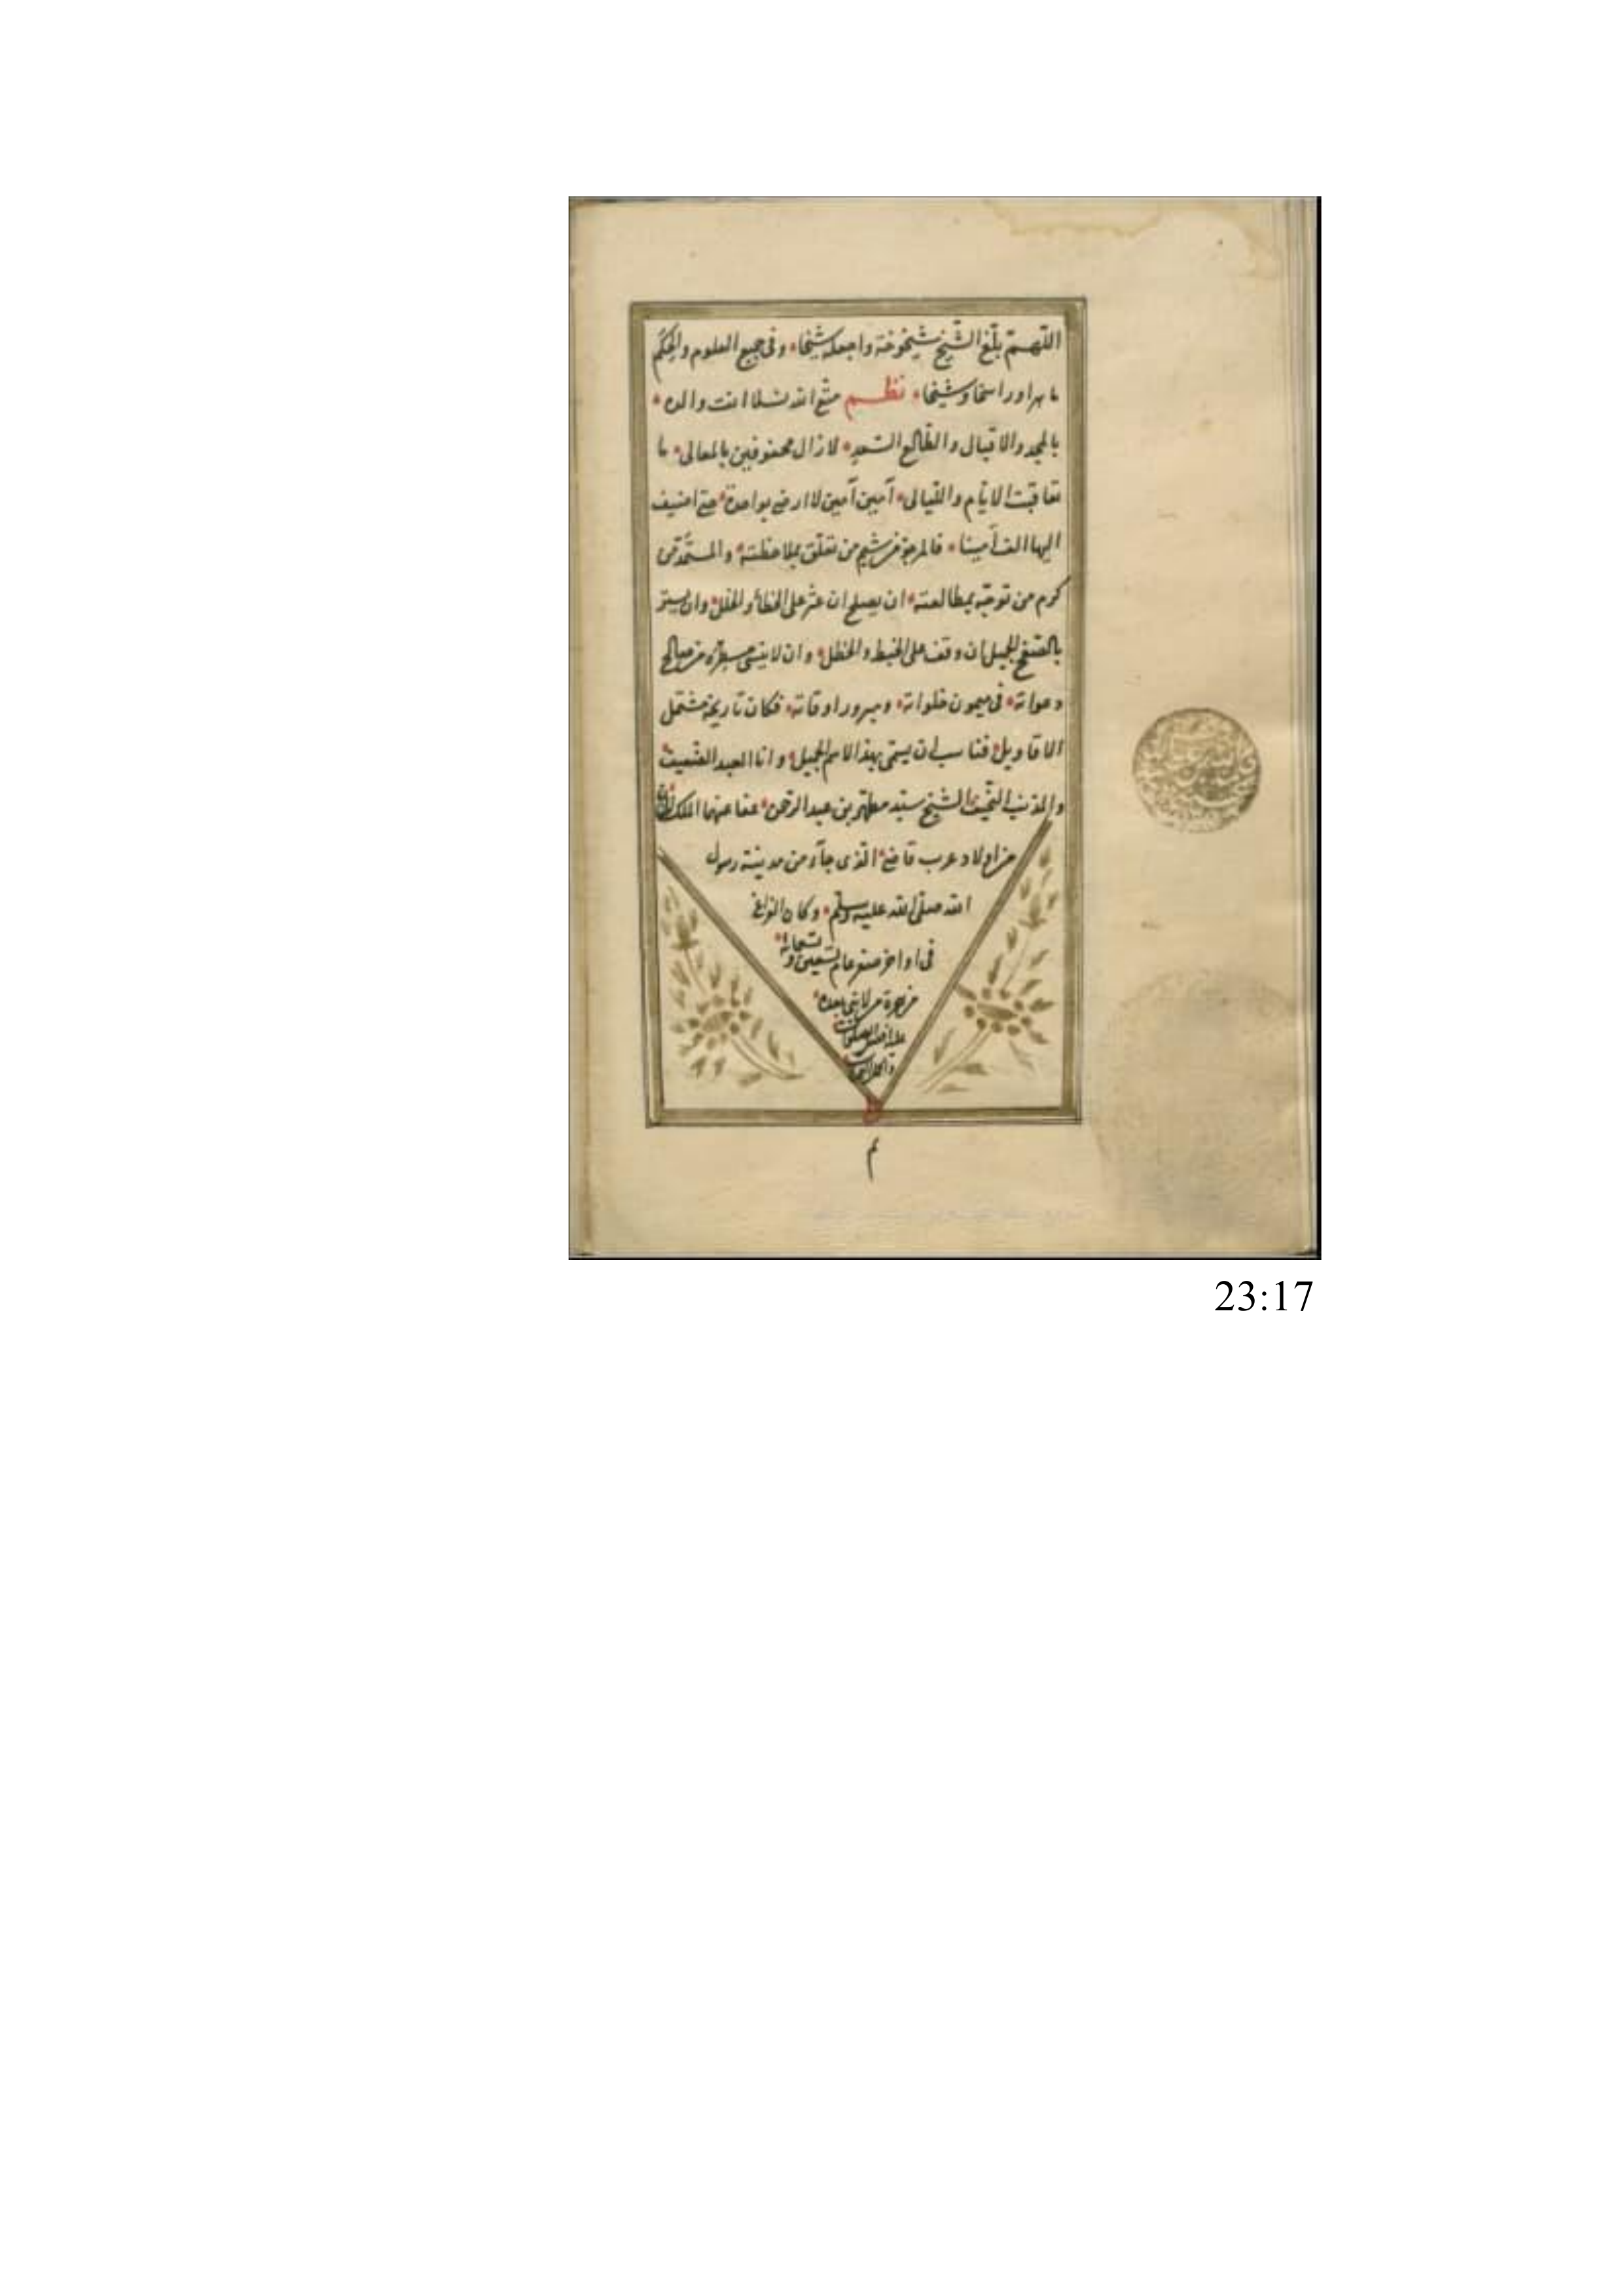 اللهمّ بلّغ الشّيخ شيخوخة واجعله شيخا، وفى جميع العلوم والحكم
ماهرا وراسخا وشيخا، نظم متّع الله نسلا انت والده،
بالمجد والاقبال والطّالع السّعيد، لازال محفوفين بالمعالى، ما
تعاقبت الايّام واللّيالى، آمين آمين لا ارضى بواحدة، حتى اضيف
اليها الف آمينا، فالمرجوّ من شيم من تعلّق بملاحظته، والمستمدّ من
كرم من توجّه بمطالعته، ان يصلح ان عثر على الخطأ والخلل، وان يستر
بالصّفح الجميل ان وقف على الخبط والخطل، وان لاينسى مسطّره من صالح
دعواته، فى ميمون خلواته، ومبرور اوقاته، فكان تاريخه مشتمل
الاقاويل، فناسب ان يسمّى بهذا الاسم الجميل، وانا العبد الضّعيف،
والمذنب النّحيف، الشّيخ سيّد مطهّر بن عبد الرّحمن، عفا عنهما الملك
من اولاد عرب قاضى، الّذى جآء من مدينة رسول
الله صلّى الله عليه وسلّم، وكان الفراغ
فى اواخر صفر عام تسعين وتسعمائة،
من هجرة من لا نبى بعده،
عليه افضل الصلوات،
واكمل التحيات
م
23:17